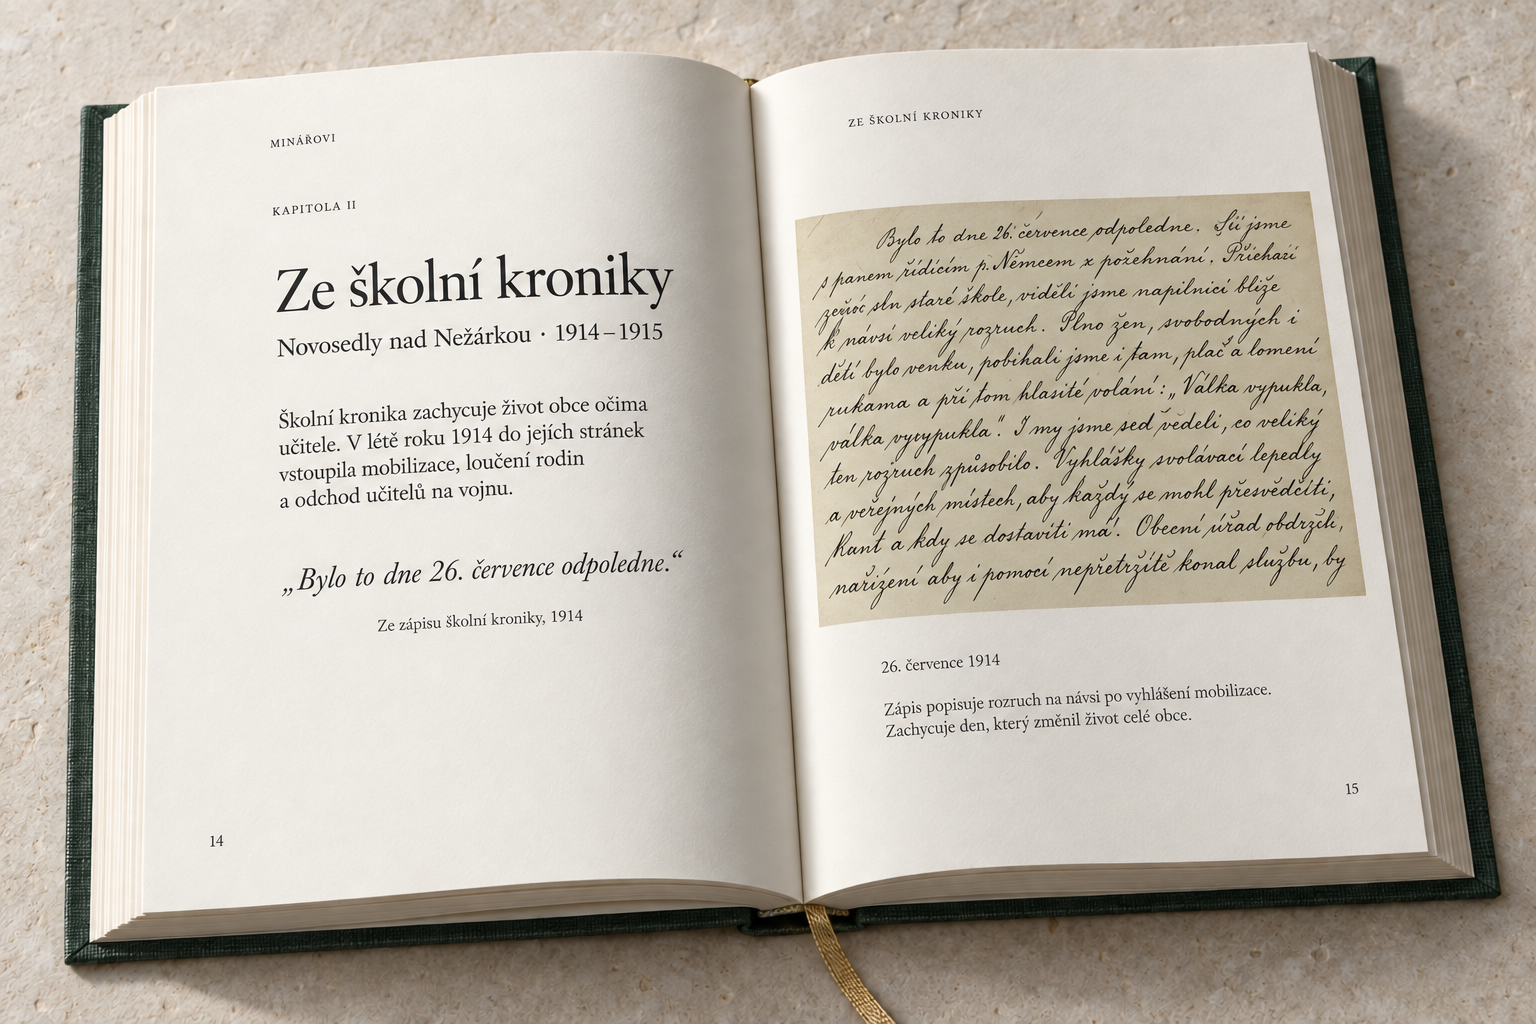 MINÁŘOVI
KAPITOLA II
Ze školní kroniky
Novosedly nad Nežárkou · 1914–1915
Školní kronika zachycuje život obce očima
učitele. V létě roku 1914 do jejích stránek
vstoupila mobilizace, loučení rodin
a odchod učitelů na vojnu.
„Bylo to dne 26. července odpoledne.“
Ze zápisu školní kroniky, 1914
14
ZE ŠKOLNÍ KRONIKY
Bylo to dne 26. července odpoledne. jsme
s panem řídícím p. Němcem z požehnání.
staré škole, viděli jsme blíže
k návsi veliký rozruch. Plno žen, svobodných i
dětí bylo venku, pobíhali jsme i tam, plač a lomení
rukama a při tom hlasité volání: „Válka vypukla,
válka vyrypukla“. I my jsme veděli, co veliký
ten rozruch způsobilo. Vyhlášky svolávací lepedly
a veřejných místech, aby každý se mohl přesvědčiti,
a kdy se dostaviti má. Obecní úřad obdržel,
nařízení aby i pomocí nepřetržitě konal službu, by
26. července 1914
Zápis popisuje rozruch na návsi po vyhlášení mobilizace.
Zachycuje den, který změnil život celé obce.
15